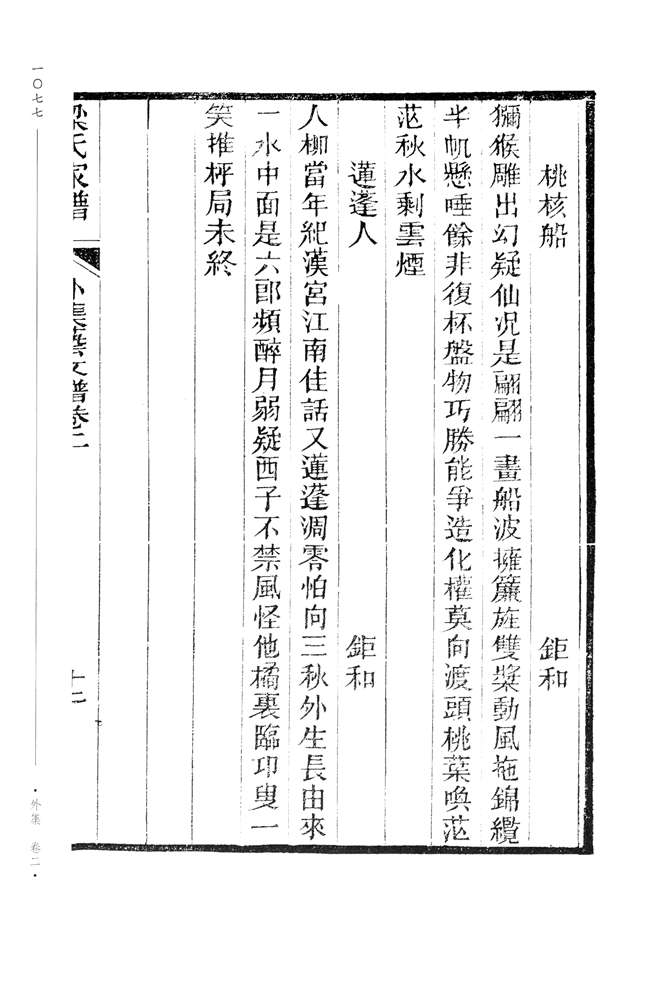 桃核船　鉅和
獼猴雕出幻疑仙况是翩翩一畫船波擁簾旌雙槳動風拖錦纜
半帆懸唾餘非復杯盤物巧勝能爭造化權莫向渡頭桃葉喚茫
茫秋水剩雲煙
蓮蓬人　鉅和
人柳當年紀漢宮江南佳話又蓮蓬凋零怕向三秋外生長由來
一水中面是六郎頻醉月弱疑西子不禁風怪他橘裏臨卭叟一
笑推枰局未終
梁氏家譜
外集藝文譜卷二
一〇七七
·外集　卷二·